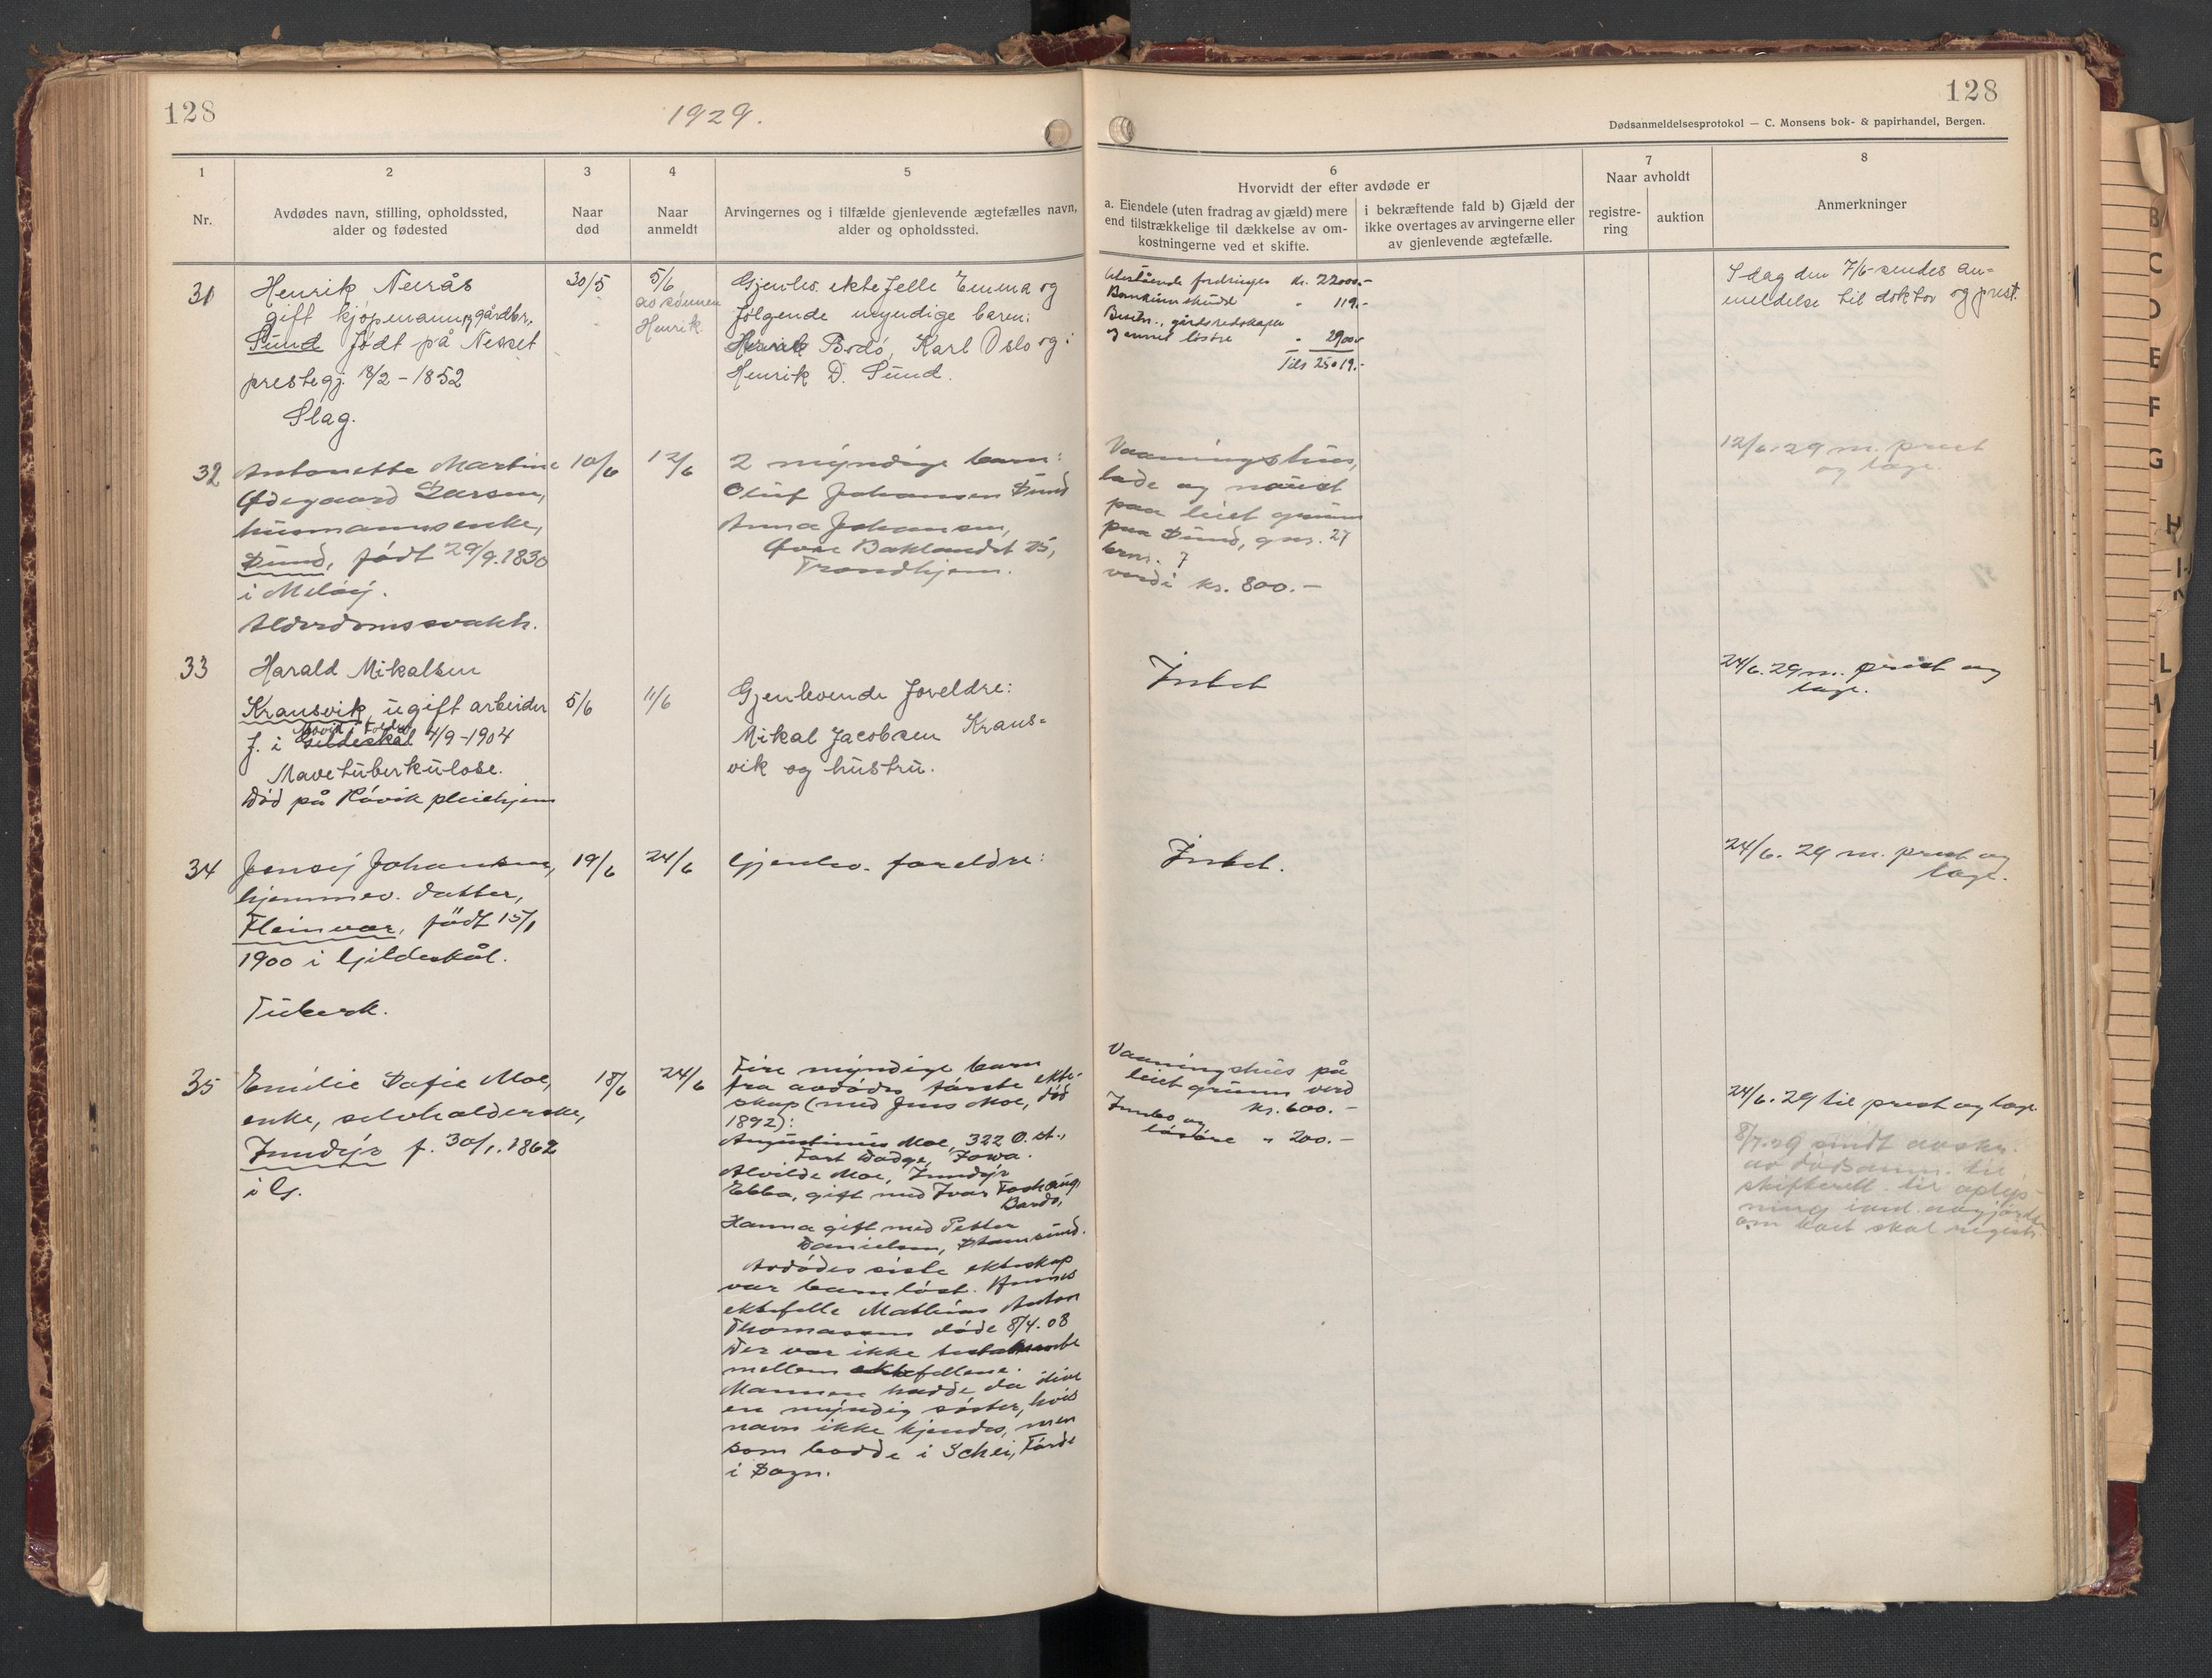 128
1929.
128
Dødsanmeldelsesprotokol — C. Monsens bok- & papirhandel, Bergen.
1
Nr.
2
Avdødes navn, stilling, opholdssted,
alder og fødested
3
Naar
død
4
Naar
anmeldt
5
Arvingernes og i tilfælde gjenlevende ægtefælles navn,
alder og opholdssted.
6
Hvorvidt der efter avdøde er
a. Eiendele (uten fradrag av gjæld) mere
end tilstrækkelige til dækkelse av om-
kostningerne ved et skifte.
i bekræftende fald b) Gjæld der
ikke overtages av arvingerne eller
av gjenlevende ægtefælle.
7
Naar avholdt
registre-
ring
auktion
8
Anmerkninger
31
Henrik Neerås
gift kjøpmann og gårdbr.,
Sund født på Nesset
prestegj. 8/2 - 1852
Slag.
30/5
5/6
av sønnen
Henrik
Gjenlev. ektefelle Emma og
følgende myndige barn:
Bodø, Karl Oslo og
Henrik D. Sund.
Utestående fordringer kr. 22000.-
Bankinnskudd " 119.-
Besetn., gårdsredskaper
og annet løsøre " 2900.-
Tils 25019.-
I dag den 7/6 sendes an-
meldelse til doktor og prest.
32
Antonette Martine
Ødegaard Larsen,
husmannsenke,
Sund, født 29/9.1830
i Meløy.
Alderdomssvakh.
10/6
12/6
2 myndige barn:
Oluf Johansen Sund
Anna Johansen,
Øvre Baklandet 25,
Trondhjem.
Vaaningshus,
lade og naust
paa leiet grunn
paa Sund, gnr. 27
brnr. 7
verdi kr. 800.-
12/6.29 m. prest
og læge.
33
Harald Mikalsen
Kransvik, ugift arbeider
f. i Gildeskål 4/9-1904
Mavetuberkulose.
Død på Røvik pleiehjem
5/6
11/6
Gjenlevende foreldre:
Mikal Jacobsen Krans-
vik og hustru.
Intet
24/6.29 m. prest og
læge.
34
Jensej Johansen,
hjemmev. datter,
Fleinvær, født 15/1
1900 i Gildeskål.
Tuberk.
19/6
24/6
Gjenlev. foreldre:
Intet.
24/6. 29 m. prest og
læge.
35
Emilie Sofie Moe,
enke, selvholderske,
Inndyr f. 30/1.1862
i G.
18/6
24/6
Fire myndige barn
fra avdødes første ekte-
skap (med Jens Moe, død
1892):
Augustinus Moe, 322 O. st.,
Fort Dodge, Iowa.
Alvilde Moe, Inndyr
Ebba, gift med Ivar Foshaug,
Bardo,
Hanna gift med Petter
Danielsen, Stamsund.
Avdødes siste ekteskap
var barnløst. Hennes
ektefelle Mathias Anton
Thomassen døde 8/4.08
Der var ikke
mellem ektefellene.
Mannen hadde da ilive
en myndig søster, hvis
navn ikke kjendes, men
som bodde i Schei, Førde
i Sogn.
Vaaningshus på
leiet grunn verd
kr. 600.-
Innbo og
løsøre " 200.-
24/6.29 til prest og læge.
8/7.29 sendt avskr.
av dødsanm. til
skifterett. til oplys-
ning innd. avgjørelse
om boet skal registr.